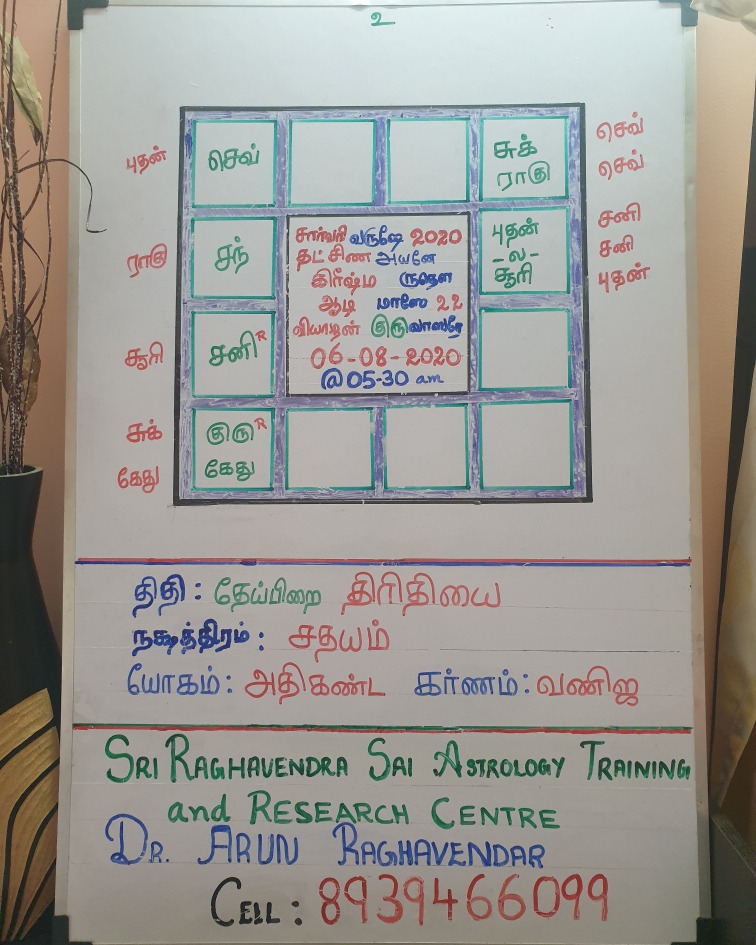 உ
புதன் செவ் சுக் செவ்
ராகு செவ்
ராகு சந் புதன் சனி
-ல- சனி
சூரி புதன்
சார்வரி வருஷே 2020
தட்சிண அயனே
கிரீஷ்ம ருதௌ
ஆடி மாஸே 22
வியாழன் குருவாஸரே
06-08-2020
@05-30 am
சூரி சனி R
சுக் குரு R
கேது கேது
திதி: தேய்பிறை திரிதியை
நக்ஷத்திரம்: சதயம்
யோகம்: அதிகண்ட கர்ணம்: வணிஜ
SRI RAGHAVENDRA SAI ASTROLOGY TRAINING
and RESEARCH CENTRE
DR. ARUN RAGHAVENDAR
CELL: 8939466099